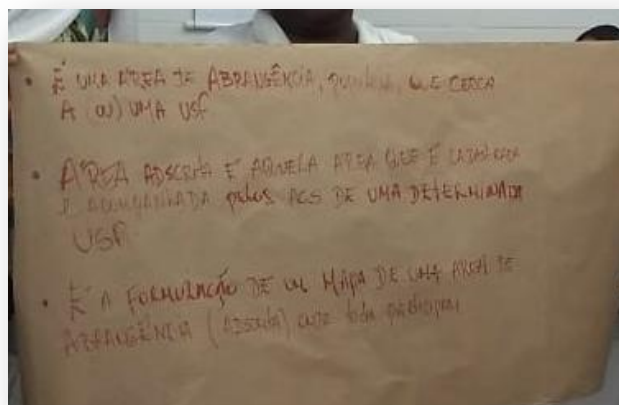 • É UMA AREA DE ABRANGÊNCIA, QUE CERCA
A (OU) UMA USF
• AREA ADSCRITA É AQUELA AREA QUE É CADASTRADA
E ACOMPANHADA pelos ACS DE UMA DETERMINADA
USF.
• É A FORMULAÇÃO DE UM MAPA DE UMA AREA DE
ABRANGÊNCIA (ADSCRITA) onde todos participam